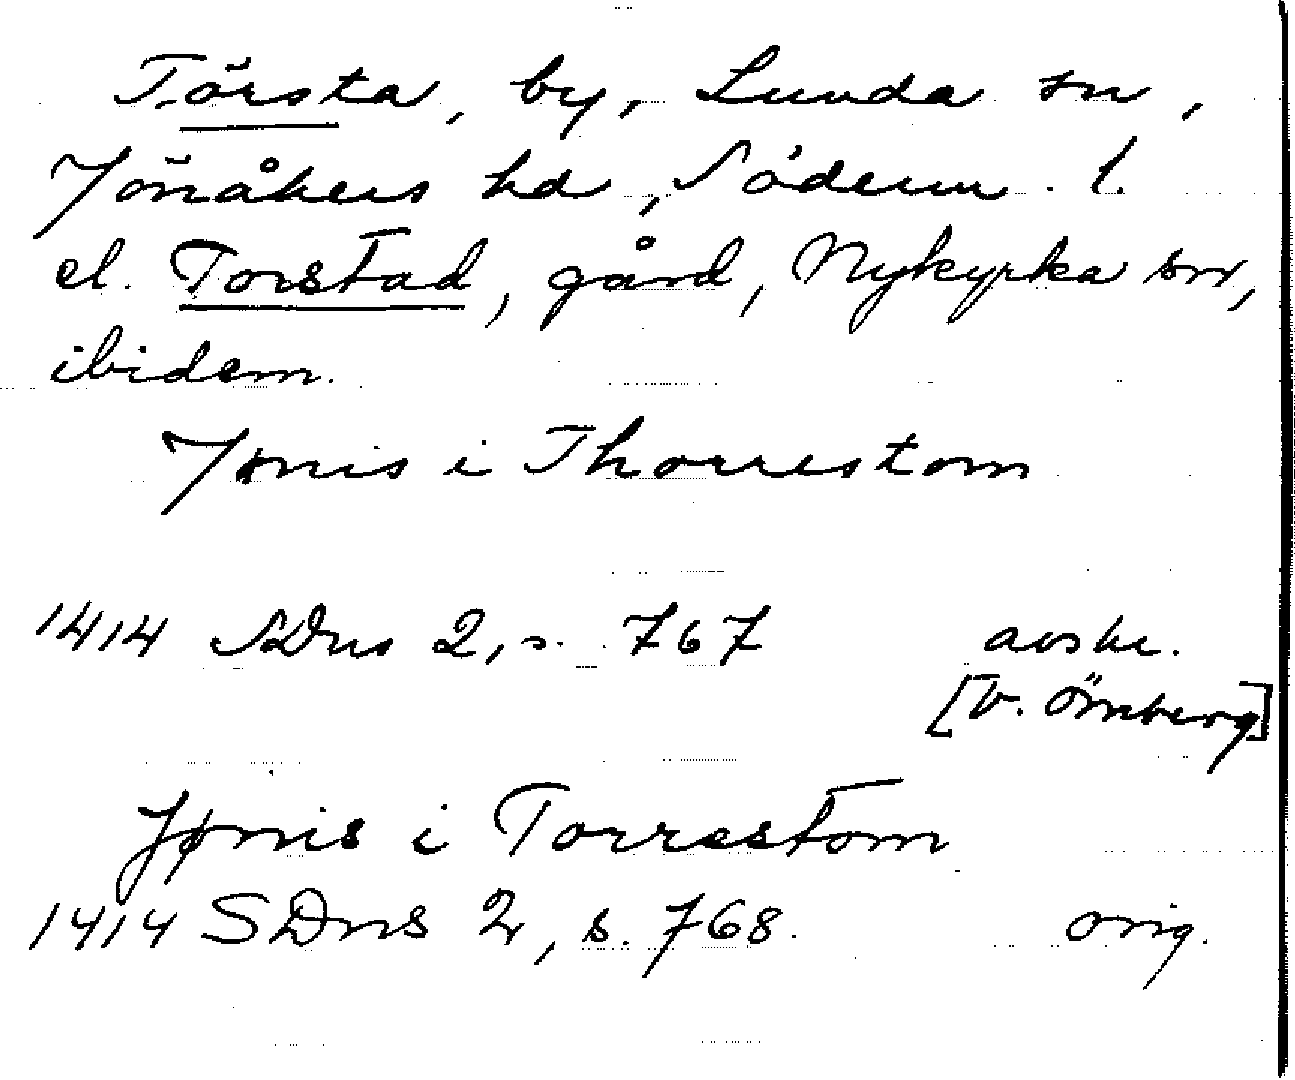 Törsta, by, Lunda sn,
Jönåkers hd, Söderm. l.
el. Torstad, gård, Nykyrka sn,
ibidem.
Jønis i Thorrestom
1414 SDns 2, s. 767 avskr.
[V. Örnberg]
Jønis i Torrestom
1414 SDns 2, s. 768. orig.